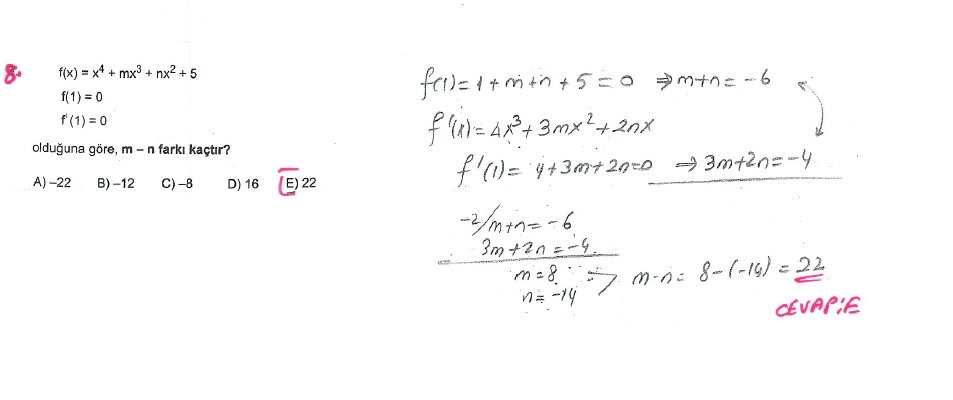 8.
f(x) = x⁴ + mx³ + nx² + 5
f(1) = 0
f'(1) = 0
olduğuna göre, m – n farkı kaçtır?
A) –22 B) –12 C) –8 D) 16 E) 22
f(1) = 1 + m + n + 5 = 0 ⇒ m+n = -6
f'(x) = 4x³ + 3mx² + 2nx
f'(1) = 4+3m+2n=0 ⇒ 3m+2n=-4
-2/m+n=-6
3m+2n=-4
m=8
n=-14
⇒ m-n= 8-(-14) = 22
CEVAP:E